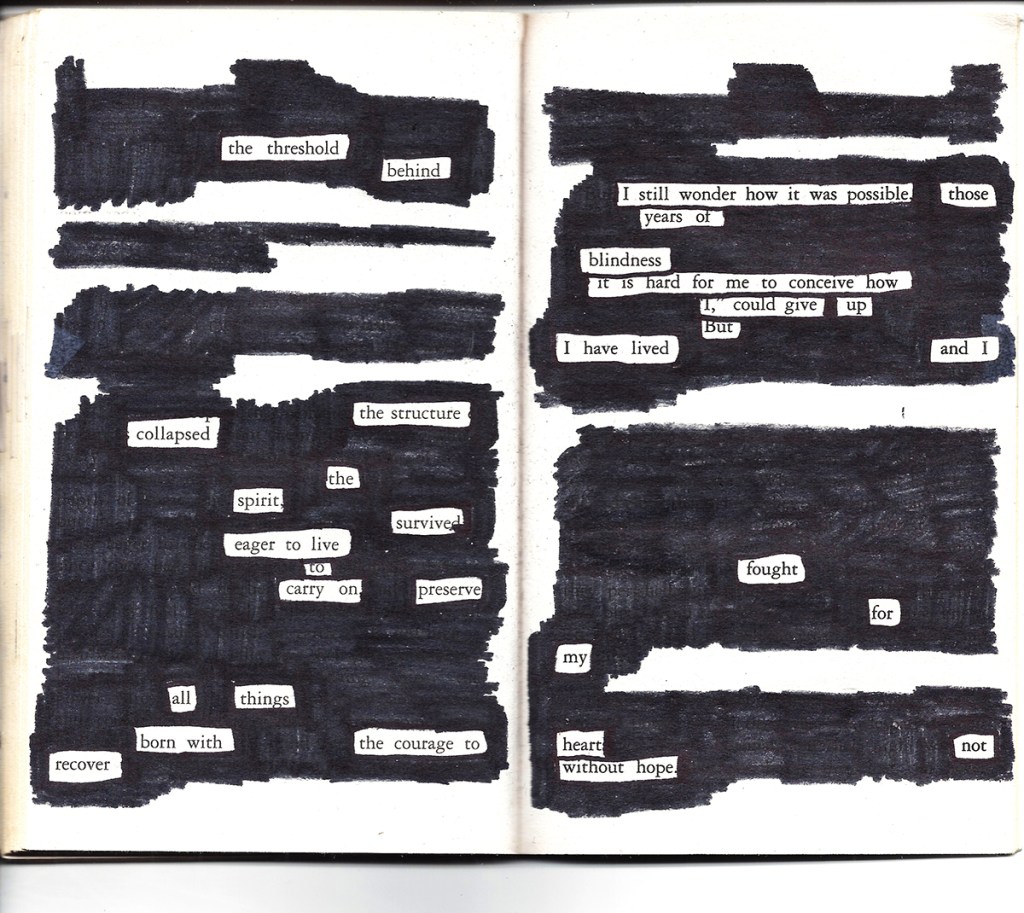 the threshold
behind
the structure
collapsed
the
spirit,
survived
eager to live
to
carry on, preserve
all things
born with the courage to
recover
I still wonder how it was possible, those
years of
blindness
it is hard for me to conceive how
I, could give up
But
I have lived and I
fought
for
my
heart not
without hope.